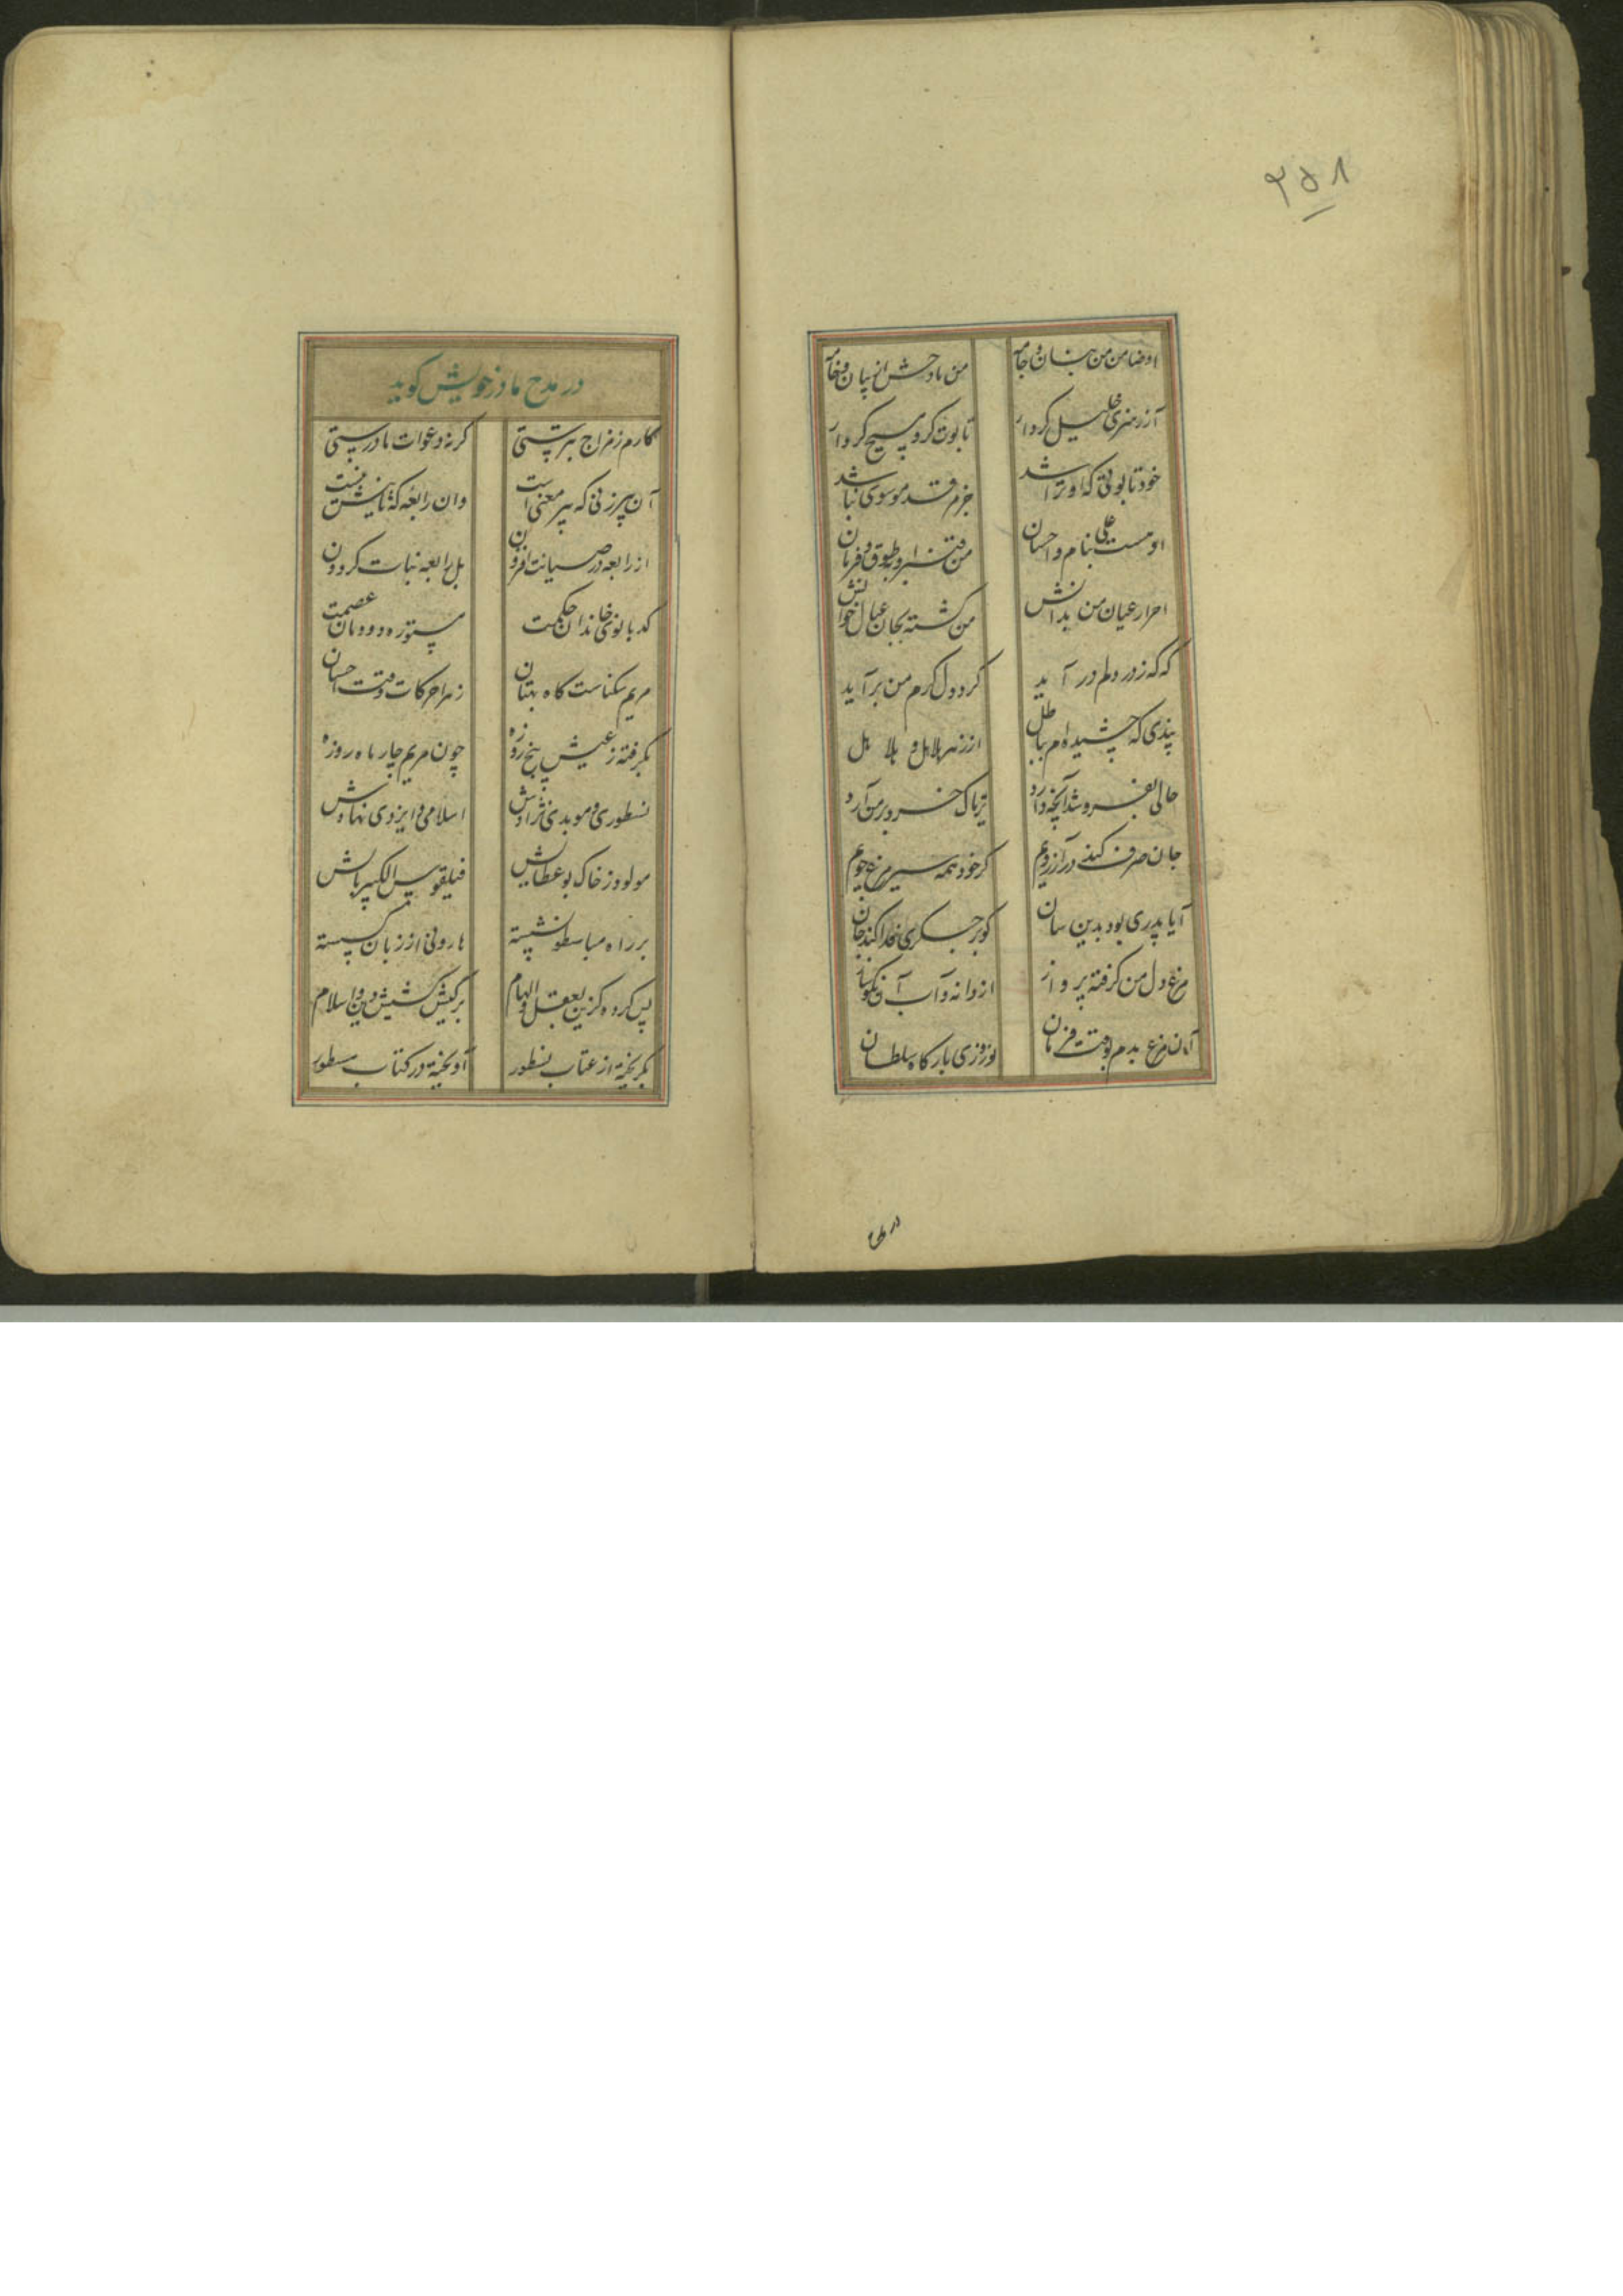 ۳۵۸
او ضامن من بنان و جامه من مادحش از بیان و خامه
آزر هنری خلیل کردار تابوت کر و مسیح کردار
خود تابوتی که او تراشد جز مهد موسوی نباشد
او هست علی بنام و احسان من قنبر او بطوق و فرمان
احرار عیان من بدانش من کشته بجان عیال خوانش
که که ز در دلم در آید کرد دل کرم من برآید
پندی که چشیده ام بباطل از زهر هلاهل و بلا بل
حالی بفروشد آنچه دارد تریاک خرد بر من آرد
جان صرف کند در آرزویم کر خود همه شیر مرغ جویم
آیا پدری بود بدین سان کو بر جکری فدا کند جان
مرغ دل من کرفته پرواز از دانه و آب آن نکوساز
آن مرغ بدم بوقت فرمان نوروزی بارکاه سلطان
در مدح
در مدح مادر خویش کوید
کارم ز مزاج بر پرستی کر نه دعوات مادرستی
آن پیرزنی که پیر معنی است وان رابعه که ثانیش نیست
از رابعه در صیانت افزون بل رابعه بنات کردون
کدبانوی خاندان حکمت مستوره دودمان عصمت
مریم سکنات کاه بهتان زهرا حرکات وقت احسان
بکرفته ز عیش پنج روزه چون مریم چار ماه روزه
نسطوری و موبدی نژادش اسلامی و ایزدی نهادش
مولود ز خاک بو عطابش فیلقوس الکبیر بابش
بر راه مباسطو نشسته هارونی از زبان کسسته
پس کرده کزین بعقل و الهام بر کیش کشیش دین اسلام
بکریخته از عتاب نسطور آویخته در کتاب مسطور